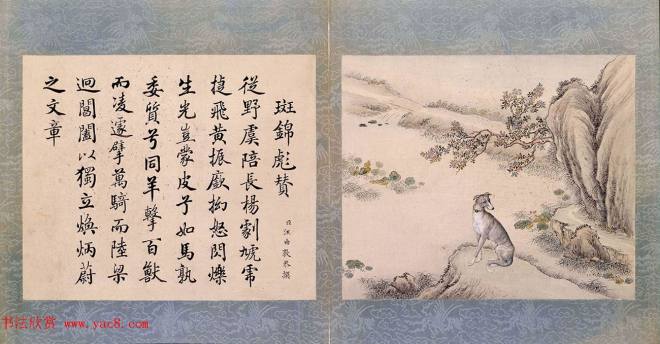 斑錦彪贊
臣汪由敦恭撰
從野虞陪長楊劇
飛黃振厥拗怒閃爍
生光豈蒙皮兮如馬孰
委質兮同羊擊百獸
而凌遽擘萬騎而陸梁
迴閶闔以獨立煥炳蔚
之文章
书法欣赏 www.yac8.com